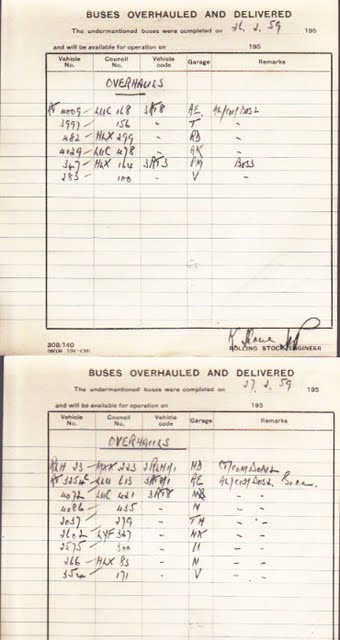 BUSES OVERHAULED AND DELIVERED
The undermentioned buses were completed on 26. 2. 59 195
and will be available for operation on 195
Vehicle No. Council No. Vehicle code Garage Remarks
OVERHAULS
RT 4009 LUC 168 3RT8 AE
3991 156 " T "
482 HLX 299 " RD "
4129 LUC 478 " AK "
347 HLX 164 3RT3 PM
283 100 " V "
308/140
K. ROLLING STOCK ENGINEER
BUSES OVERHAULED AND DELIVERED
The undermentioned buses were completed on 27. 2. 59 195
and will be available for operation on 195
Vehicle No. Council No. Vehicle code Garage Remarks
OVERHAULS
RLH 23 MXX 223 2RLH1/1
RT 3254 LLU 613 RE
4072 LUC 421 3RT8
4086 435 " N " "
2037 279 " TH " "
2602 LYF 327 " " "
2575 300 " U " "
266 HLX 83 " N " "
354 171 " V " "